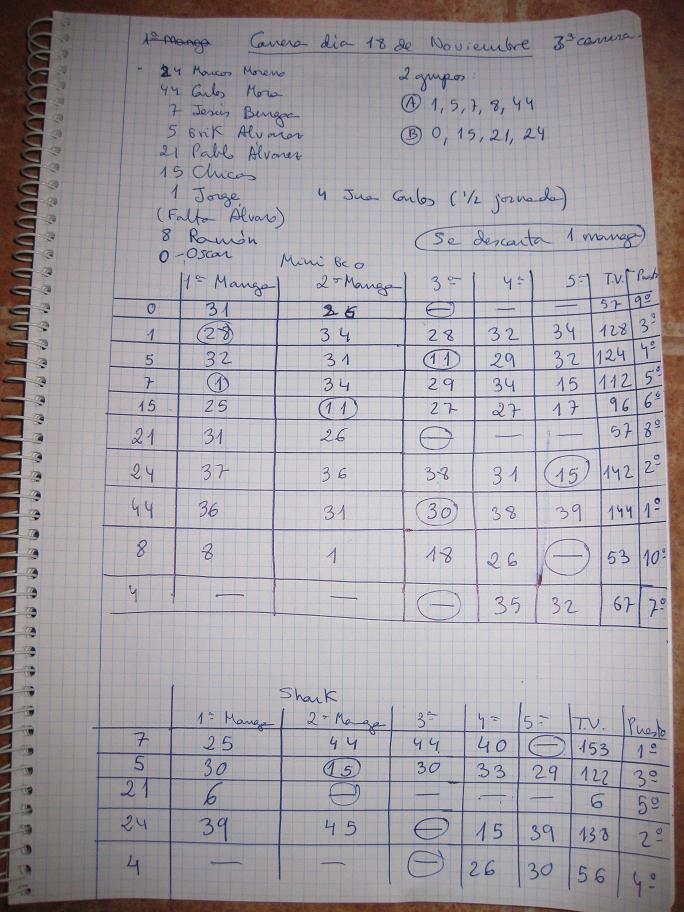 1ª Manga Carrera dia 18 de Noviembre 3ª carrera
24 Marcos Moreno 2 grupos:
44 Carlos Mora A 1, 5, 7, 8, 44
7 Jesús
5 Erik Alvarez B 0, 15, 21, 24
21 Pablo Álvarez
15 Chicas
1 Jorge 4 Juan Carlos (1/2 jornada)
(Falta Álvaro)
8 Ramón Se descarta 1 manga
0 - Oscar Mini
1ª Manga 2ª Manga 3ª 4ª 5ª T.V. Puesto
0 31 26 — — — 57 9º
1 28 34 28 32 34 128 3º
5 32 31 11 29 32 124 4º
7 1 34 29 34 15 112 5º
15 25 11 27 27 17 96 6º
21 31 26 — — — 57 8º
24 37 36 38 31 15 142 2º
44 36 31 30 38 39 144 1º
8 8 1 18 26 — 53 10º
4 — — — 35 32 67 7º
Shark
1ª Manga 2ª Manga 3ª 4ª 5ª T.V. Puesto
7 25 44 44 40 — 153 1º
5 30 15 30 33 29 122 3º
21 6 — — — — 6 5º
24 39 45 — 15 39 138 2º
4 — — — 26 30 56 4º